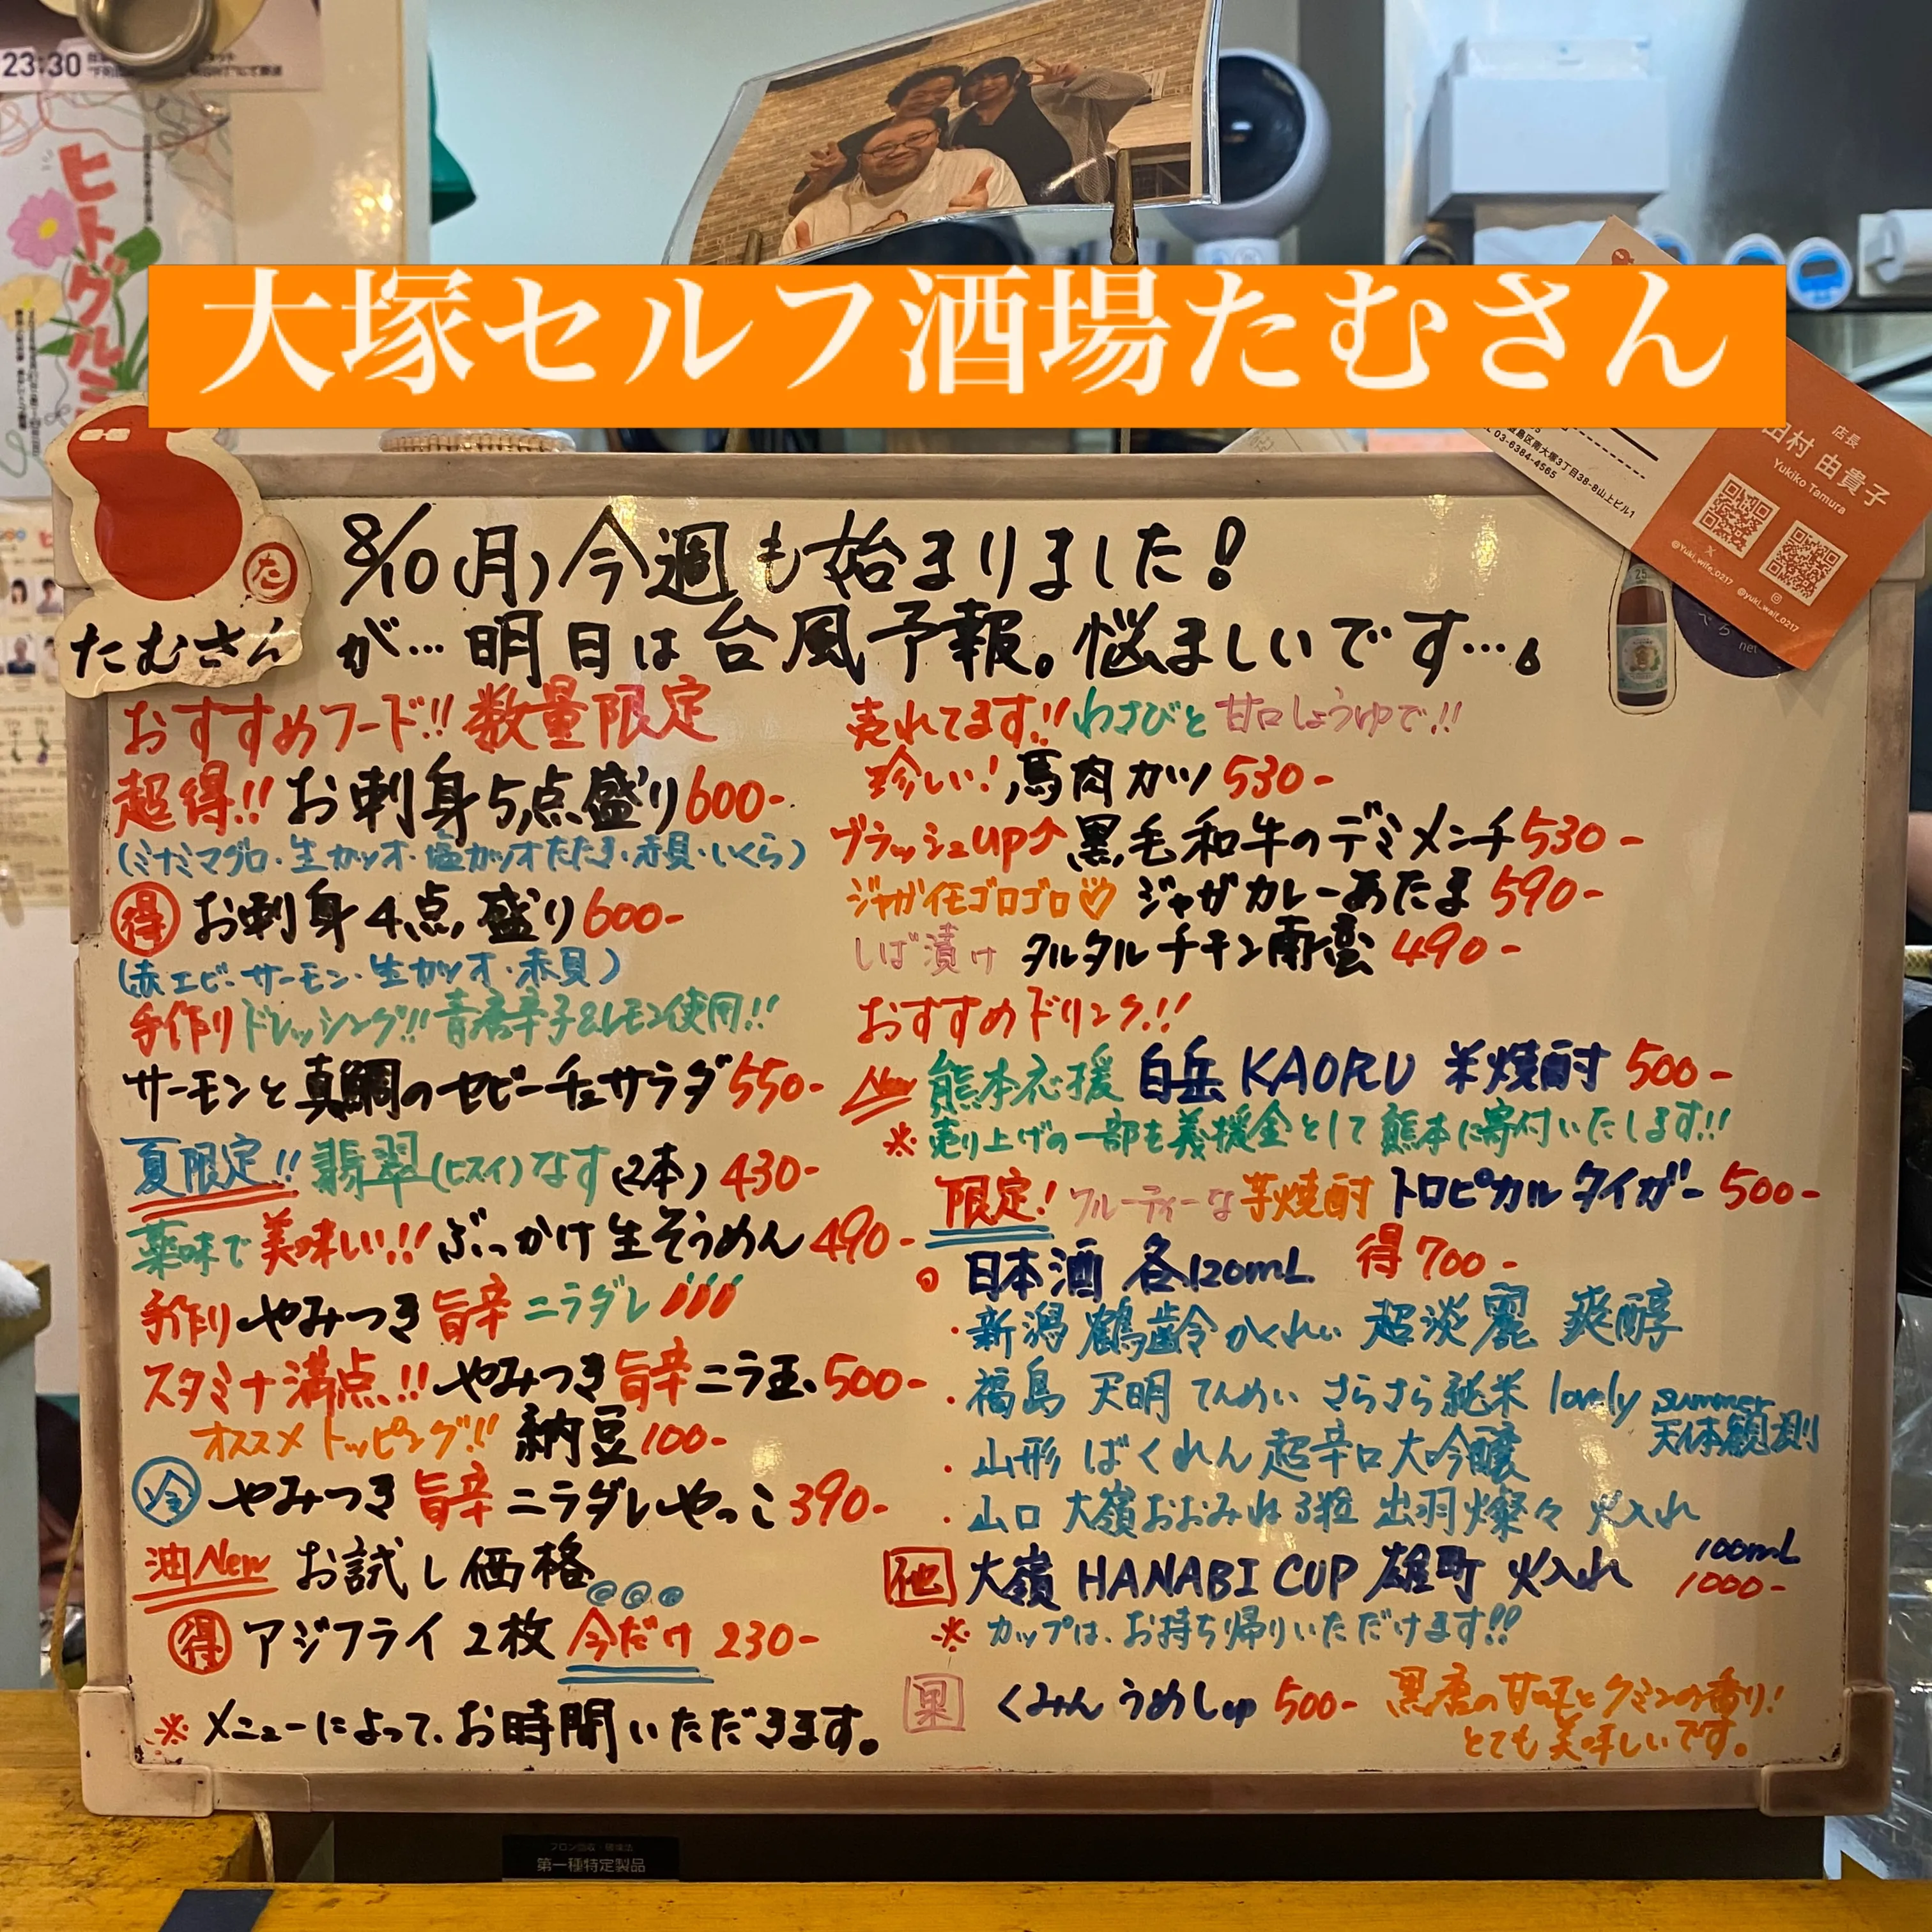 23:30
ヒトグルミ
大塚セルフ酒場たむさん
店長
田村 由貴子
Yukiko Tamura
島区南大塚3丁目38-8山上ビル1
03-6384-4565
@Yuki_wife_0217
@yuki_waif_0217
た
たむさん
8/10(月)今週も始まりました!
が…明日は台風予報。悩ましいです…。
おすすめフード!! 数量限定
超得!! お刺身5点盛り600-
(ミナミマグロ・生カツオ・塩カツオたたき・赤貝・いくら)
得 お刺身4点盛り600-
(赤エビ・サーモン・生カツオ・赤貝)
手作りドレッシング!!青唐辛子&レモン使用!!
サーモンと真鯛のセビーチェサラダ550-
夏限定!! 翡翠(ヒスイ)なす(2本)430-
薬味で美味しい!! ぶっかけ生そうめん490-
手作りやみつき旨辛ニラダレ
スタミナ満点!!やみつき旨辛ニラ玉500-
オススメトッピング!! 納豆100-
冷 やみつき旨辛ニラダレやっこ390-
油New お試し価格
得 アジフライ2枚 今だけ 230-
※メニューによって、お時間いただきます。
売れてます!!わさびと甘口しょうゆで!!
珍しい!馬肉カツ530-
ブラッシュup↗黒毛和牛のデミメンチ530-
ジャガイモゴロゴロ♡ ジャガカレーあたま590-
しば漬け タルタルチキン南蛮490-
おすすめドリンク!!
New 熊本応援 白岳KAORU 米焼酎 500-
※売り上げの一部を義援金として熊本に寄付いたします!!
限定! フルーティーな芋焼酎 トロピカルタイガー 500-
日本酒 各120mL 得700-
・新潟 鶴齢 かくれい 超淡麗 爽醇
・福島 天明 てんめい さらさら純米 lovely summer
天体観測
・山形 ばくれん 超辛口大吟醸
・山口 大嶺おおみね3粒 出羽燦々 火入れ
他 大嶺 HANABI CUP 雄町 火入れ 100mL
1000-
※カップは、お持ち帰りいただけます!!
果 くみん うめしゅ 500- 黒唐の甘味とクミンの香り!
とても美味しいです。
フロン回収・破壊法
第一種特定製品